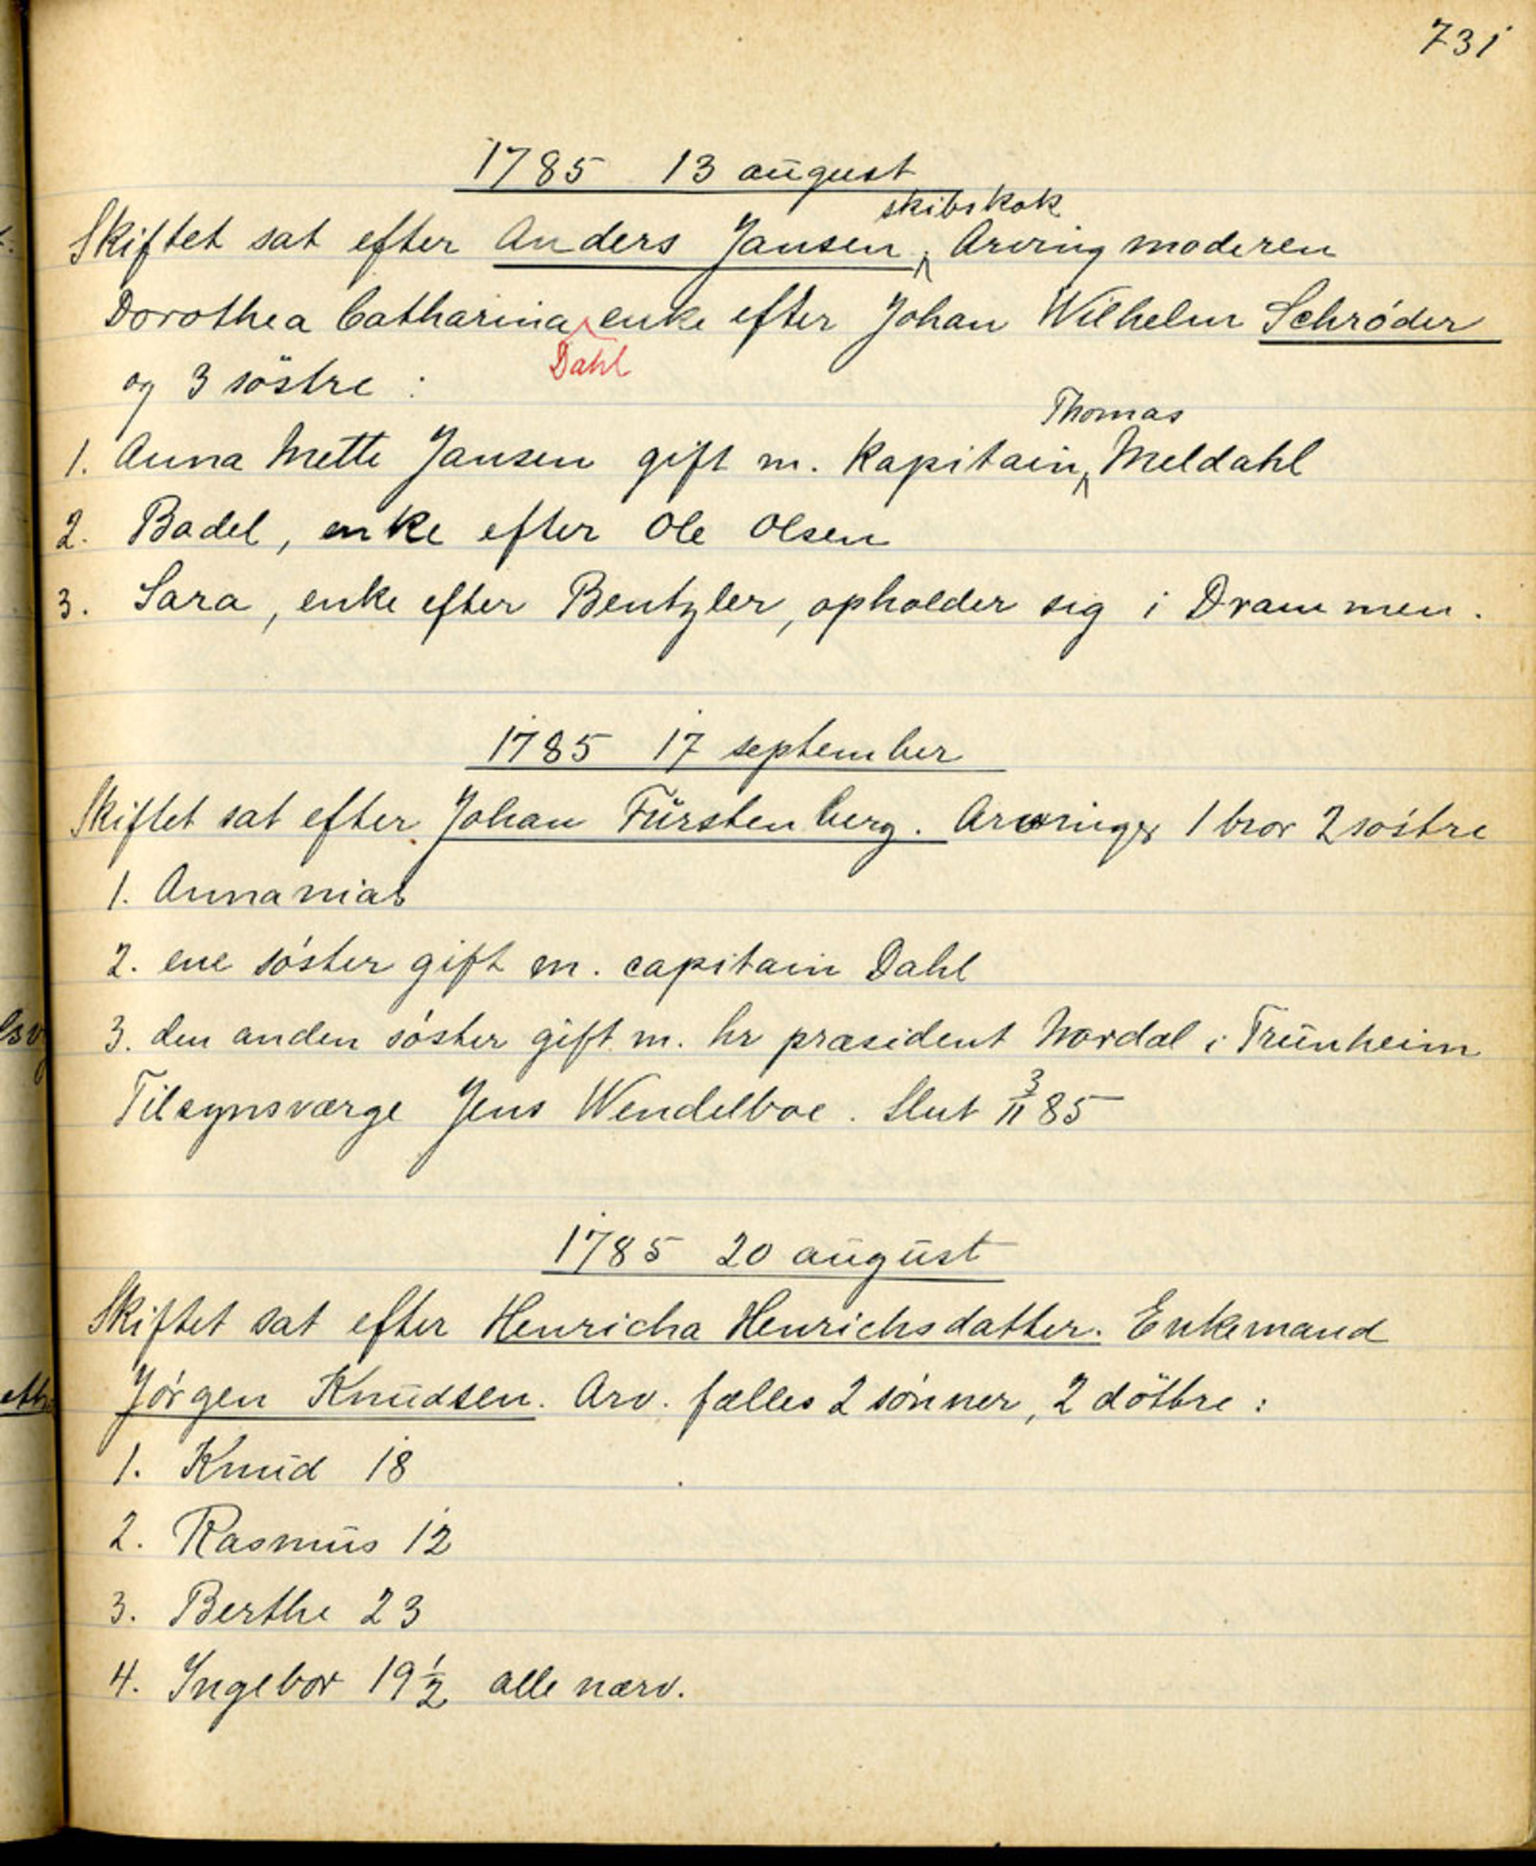 731
1785 13 august
skibskok
Skiftet sat efter Anders Jansen, Arving moderen
Dorothea Catharina enke efter Johan Wilhelm Schrøder
Dahl
og 3 söstre :
Thomas
1. Anna Mette Jansen gift m. Kapitain Meldahl
2. Badel, enke efter Ole Olsen
3. Sara, enke efter Bentzler, opholder sig i Drammen.
1785 17 september
Skiftet sat efter Johan Fürstenberg. Arvinger 1 bror 2 søstre
1. Annanias
2. ene søster gift m. capitain Dahl
3. den anden søster gift m. hr præsident Nordal i Trunheim
Tilsynsværge Jens Wendelboe. Slut 3/11 85
1785 20 august
Skiftet sat efter Henricha Henrichsdatter. Enkemand
Jørgen Knudsen. Arv. fælles 2 sønner, 2 döttre :
1. Knud 18
2. Rasmus 12
3. Berthe 23
4. Ingebor 19 1/2 alle nærv.